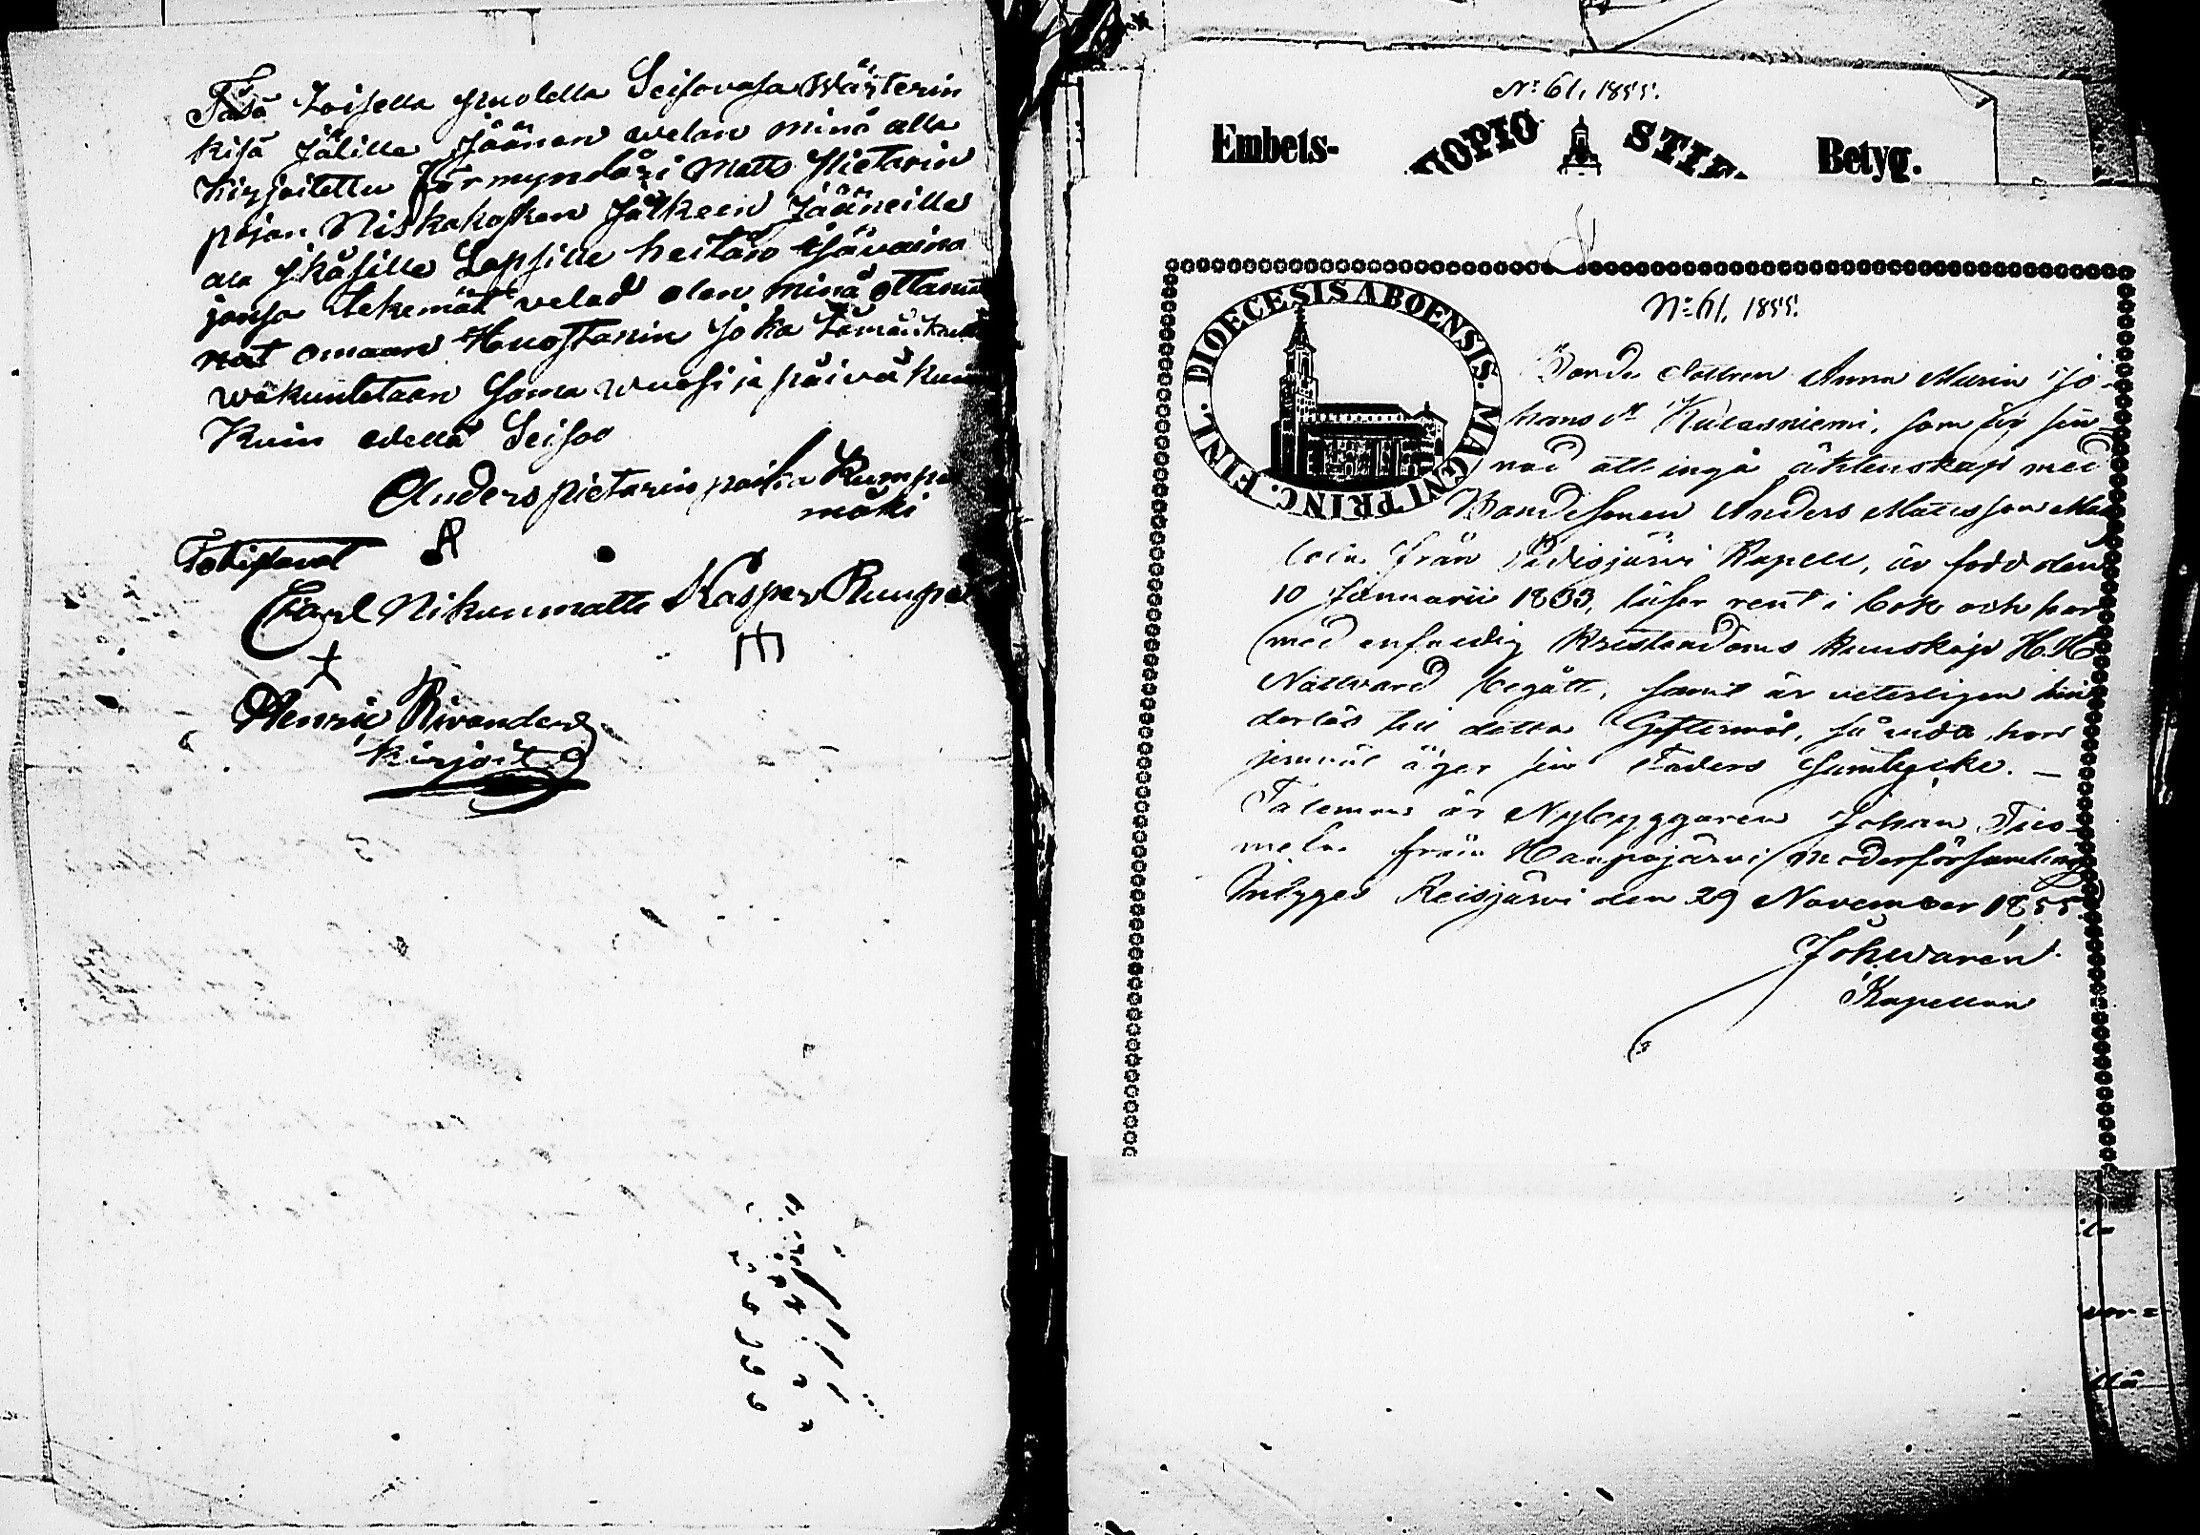 Täsä toisella Puolella Seisovasa Wärterin
kisä jälille jäänen velan minä alla
kirjoitettu Förmyndäri Matts Pietarin
pojan Niskakosken jälkeen jääneille
ala Ikäsille Lapsille heitän Isävaina
jansa tekemät velad olen minä ottanut
nat omaan Huostanin joka tämän kautta
wakuutetaan Sama wuosi ja päivä kuin
Kuin edellä Seisoo
Anders pietarin poika Kumpu
mäki
Totistavat
Carl Nikunmatti Kasper Kumpu
Henric Rivander
kirjoit
No 61, 1855.
Embets- UOPIO STIF Betyg.
No 61, 1855.
DIOECESIS ABOENSIS. MAGNI PRINC. FINL.
Bonde dottren Anna Maria Jo
hans dr Kulasniemi, som är sin
nad att ingå äktenskap med
Bondesonen Anders Matsson
från Kapell, är född den
10 Januarii 1833, läser rent i bok och har
med enfaldig Kristendoms kunskap H.H.
Nattvard begått, samt är veterligen hin
derlös till detta Giftermål, så vida hon
jemväl äger sin Faders samtycke. —
Taleman är Nybyggaren Johan Tuo
mela från Haapajärvi moderförsamling
Intygas Reisjärvi den 29 November 1855
Joh. Warén.
Kapellan